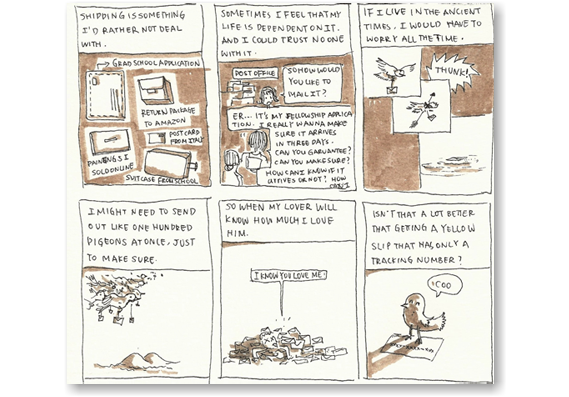 SHIPPING IS SOMETHING
I'D RATHER NOT DEAL
WITH.
GRAD SCHOOL APPLICATION
RETURN PACKAGE
TO AMAZON
PAINTINGS I
SOLD ONLINE
POSTCARD
FROM ITALY
SUITCASE FROM SCHOOL
SOMETIMES I FEEL THAT MY
LIFE IS DEPENDENT ON IT.
AND I COULD TRUST NO ONE
WITH IT.
POST OFFICE
SO HOW WOULD
YOU LIKE TO
MAIL IT?
ER... IT'S MY FELLOWSHIP APPLICA
TION. I REALLY WANNA MAKE
SURE IT ARRIVES
IN THREE DAYS.
CAN YOU GARUANTEE?
CAN YOU MAKE SURE?
HOW CAN I KNOW IF IT
ARRIVES OR NOT? HOW
CAN I
IF I LIVE IN THE ANCIENT
TIMES, I WOULD HAVE TO
WORRY ALL THE TIME.
THUNK!
I MIGHT NEED TO SEND
OUT LIKE ONE HUNDRED
PIGEONS AT ONCE, JUST
TO MAKE SURE.
SO WHEN MY LOVER WILL
KNOW HOW MUCH I LOVE
HIM.
I KNOW YOU LOVE ME.
ISN'T THAT A LOT BETTER
THAT GETTING A YELLOW
SLIP THAT HAS ONLY A
TRACKING NUMBER?
COO